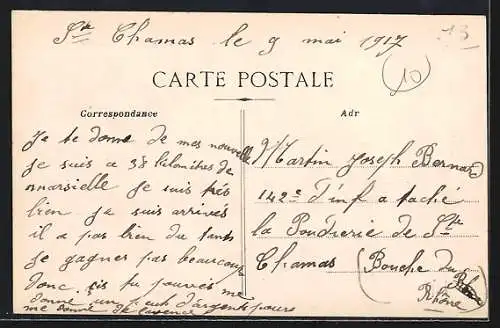 Ste Chamas le 9 mai 1917
13
10
CARTE POSTALE
Correspondance
Adr
Je te donne de mes nouvelle
je suis a 38 kilomètres de
marsielle je suis très
bien je suis arrivés
il a pas bien du tants
je gagnes pas beaucoup
donc sis tu pouvés me
donne un peut d'argent pours
me donne de l'avence
Martin Joseph Bernard
142e d'inf a taché
la Poudrerie de Ste
Chamas (Bouche du Rhône)
Rhône